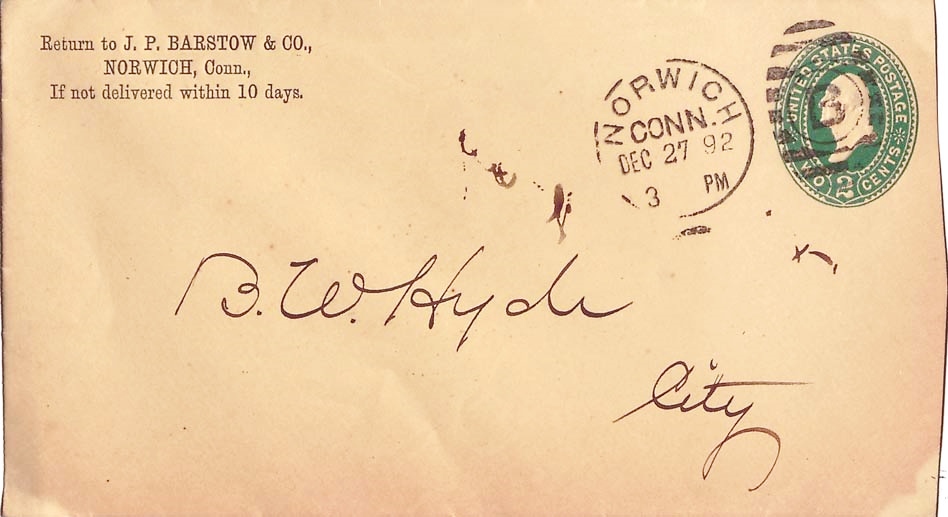 Return to J. P. BARSTOW & CO.,
NORWICH, Conn.,
If not delivered within 10 days.
NORWICH
CONN.
DEC 27 92
3 PM
B
UNITED STATES POSTAGE
TWO 2 CENTS
B. W. Hyde
City